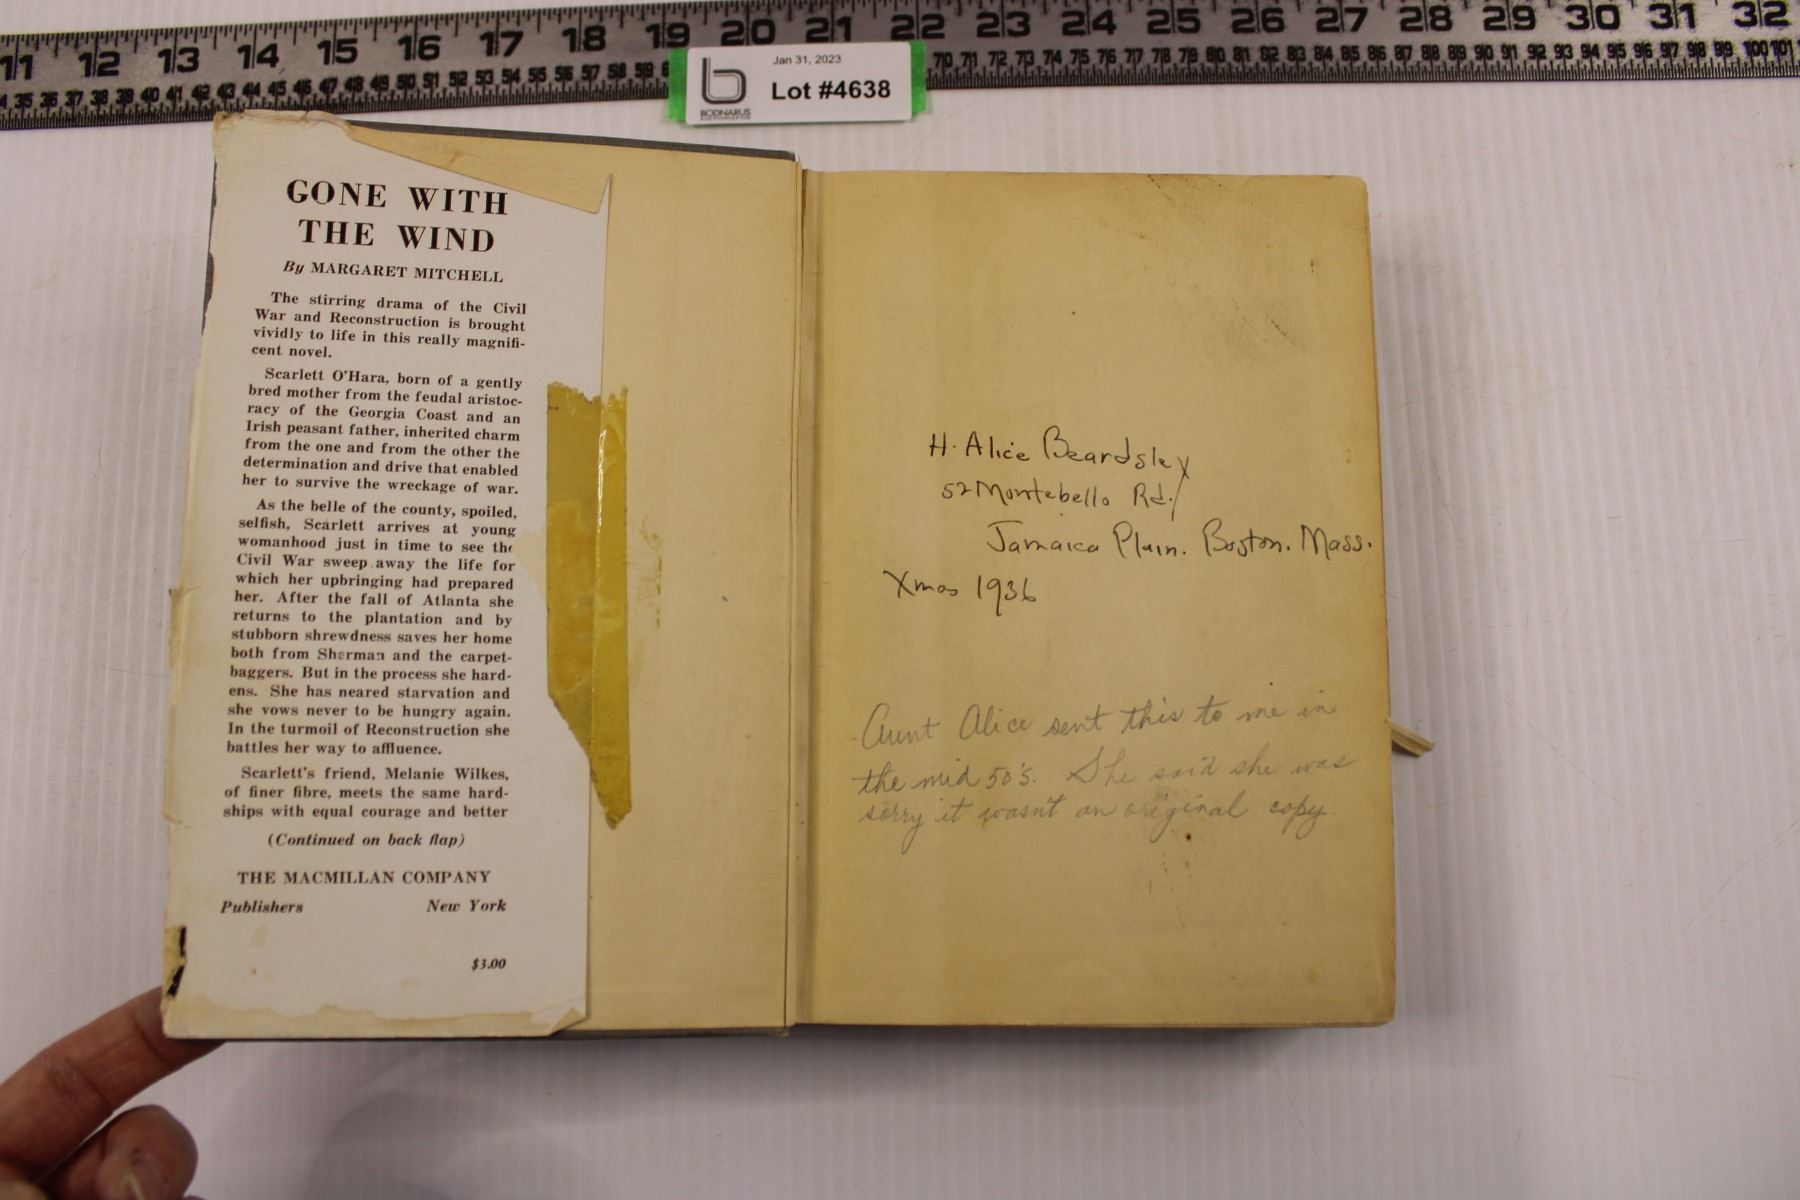 11 12 13 14 15 16 17 18 19 20 21 22 23 24 25 26 27 28 29 30 31 32
35 36 37 38 39 40 41 42 43 44 45 46 47 48 49 50 51 52 53 54 55 56 57 58 59 70 71 72 73 74 75 76 77 78 79 80 81 82 83 84 85 86 87 88 89 90 91 92 93 94 95 96 97 98 99 100 101
Jan 31, 2023
Lot #4638
BODNARUS
AUCTIONEERING
GONE WITH
THE WIND
By MARGARET MITCHELL
The stirring drama of the Civil
War and Reconstruction is brought
vividly to life in this really magnifi-
cent novel.
Scarlett O'Hara, born of a gently
bred mother from the feudal aristoc-
racy of the Georgia Coast and an
Irish peasant father, inherited charm
from the one and from the other the
determination and drive that enabled
her to survive the wreckage of war.
As the belle of the county, spoiled,
selfish, Scarlett arrives at young
womanhood just in time to see the
Civil War sweep away the life for
which her upbringing had prepared
her. After the fall of Atlanta she
returns to the plantation and by
stubborn shrewdness saves her home
both from Sherman and the carpet-
baggers. But in the process she hard-
ens. She has neared starvation and
she vows never to be hungry again.
In the turmoil of Reconstruction she
battles her way to affluence.
Scarlett's friend, Melanie Wilkes,
of finer fibre, meets the same hard-
ships with equal courage and better
(Continued on back flap)
THE MACMILLAN COMPANY
Publishers New York
$3.00
H. Alice Beardsley
52 Montebello Rd.
Jamaica Plain. Boston. Mass.
Xmas 1936
Aunt Alice sent this to me in
the mid 50's. She said she was
sorry it wasn't an original copy.